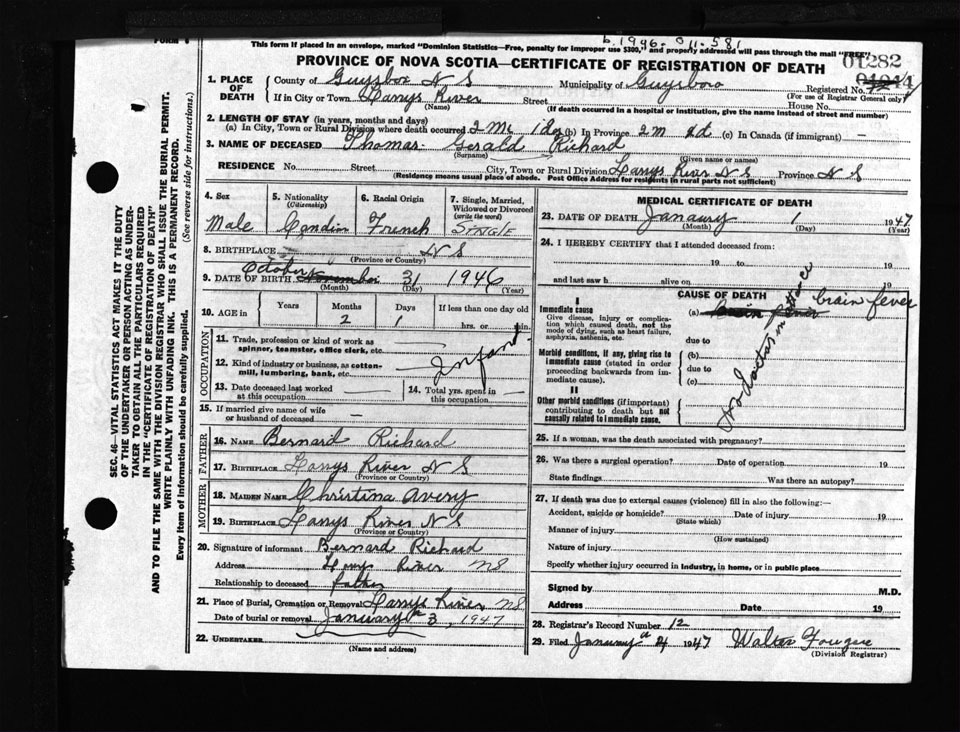 b. 1946-011-581
FORM
This form if placed in an envelope, marked "Dominion Statistics—Free, penalty for improper use $300," and properly addressed will pass through the mail "FREE"
PROVINCE OF NOVA SCOTIA—CERTIFICATE OF REGISTRATION OF DEATH
01282
1. PLACE OF DEATH County of Guysboro N S Municipality of Guysboro Registered No.
(For use of Registrar General only)
If in City or Town Larrys River Street House No.
(Name) (If death occurred in a hospital or institution, give the name instead of street and number)
2. LENGTH OF STAY (in years, months and days)
(a) In City, Town or Rural Division where death occurred 2 M 1 day (b) In Province 2 m d (c) In Canada (if immigrant) —
3. NAME OF DECEASED Thomas Gerald Richard
(Surname) (Given name or names)
RESIDENCE No. Street City, Town or Rural Division Larrys River N S Province N S
(Residence means usual place of abode. Post Office Address for residents in rural parts not sufficient)
4. Sex Male
5. Nationality (Citizenship)
6. Racial Origin French
7. Single, Married, Widowed or Divorced (write the word) SINGLE
8. BIRTHPLACE N S
(Province or Country)
9. DATE OF BIRTH November October 31 1946
(Month) (Day) (Year)
10. AGE in Years Months Days If less than one day old
2 1 hrs. or min.
OCCUPATION
11. Trade, profession or kind of work as spinner, teamster, office clerk, etc.
12. Kind of industry or business, as cotton-mill, lumbering, bank, etc.
Infant
13. Date deceased last worked at this occupation —
14. Total yrs. spent in this occupation —
15. If married give name of wife or husband of deceased —
FATHER
16. NAME Bernard Richard
17. BIRTHPLACE Larrys River N S
(Province or Country)
MOTHER
18. MAIDEN NAME Christina Avery
19. BIRTHPLACE Larrys River N S
(Province or Country)
20. Signature of informant Bernard Richard
Address River NS
Relationship to deceased father
21. Place of Burial, Cremation or Removal Larrys River NS
Date of burial or removal January 3, 1947
22. UNDERTAKER
(Name and address)
MEDICAL CERTIFICATE OF DEATH
23. DATE OF DEATH Janaury 1 1947
(Month) (Day) (Year)
24. I HEREBY CERTIFY that I attended deceased from:
19 to 19
and last saw h alive on 19
CAUSE OF DEATH
I
Immediate cause
Give disease, injury or complication which caused death, not the mode of dying, such as heart failure, asphyxia, asthenia, etc.
(a) brain fever
due to
Morbid conditions, if any, giving rise to immediate cause (stated in order proceeding backwards from immediate cause).
(b)
due to
(c)
II
Other morbid conditions (if important) contributing to death but not causally related to immediate cause.
No doctor in attendance
25. If a woman, was the death associated with pregnancy?
26. Was there a surgical operation? Date of operation 19
State findings Was there an autopsy?
27. If death was due to external causes (violence) fill in also the following:—
Accident, suicide or homicide? Date of injury 19
(State which)
Manner of injury
(How sustained)
Nature of injury
Specify whether injury occurred in industry, in home, or in public place
Signed by M.D.
Address Date 19
28. Registrar's Record Number 12
29. Filed January 4 1947 Walter Fougere
(Division Registrar)
SEC. 46—VITAL STATISTICS ACT MAKES IT THE DUTY
OF THE UNDERTAKER OR PERSON ACTING AS UNDER-
TAKER TO OBTAIN ALL THE PARTICULARS REQUIRED
IN THE "CERTIFICATE OF REGISTRATION OF DEATH"
AND TO FILE THE SAME WITH THE DIVISION REGISTRAR WHO SHALL ISSUE THE BURIAL PERMIT.
WRITE PLAINLY WITH UNFADING INK. THIS IS A PERMANENT RECORD.
Every item of information should be carefully supplied. (See reverse side for instructions.)